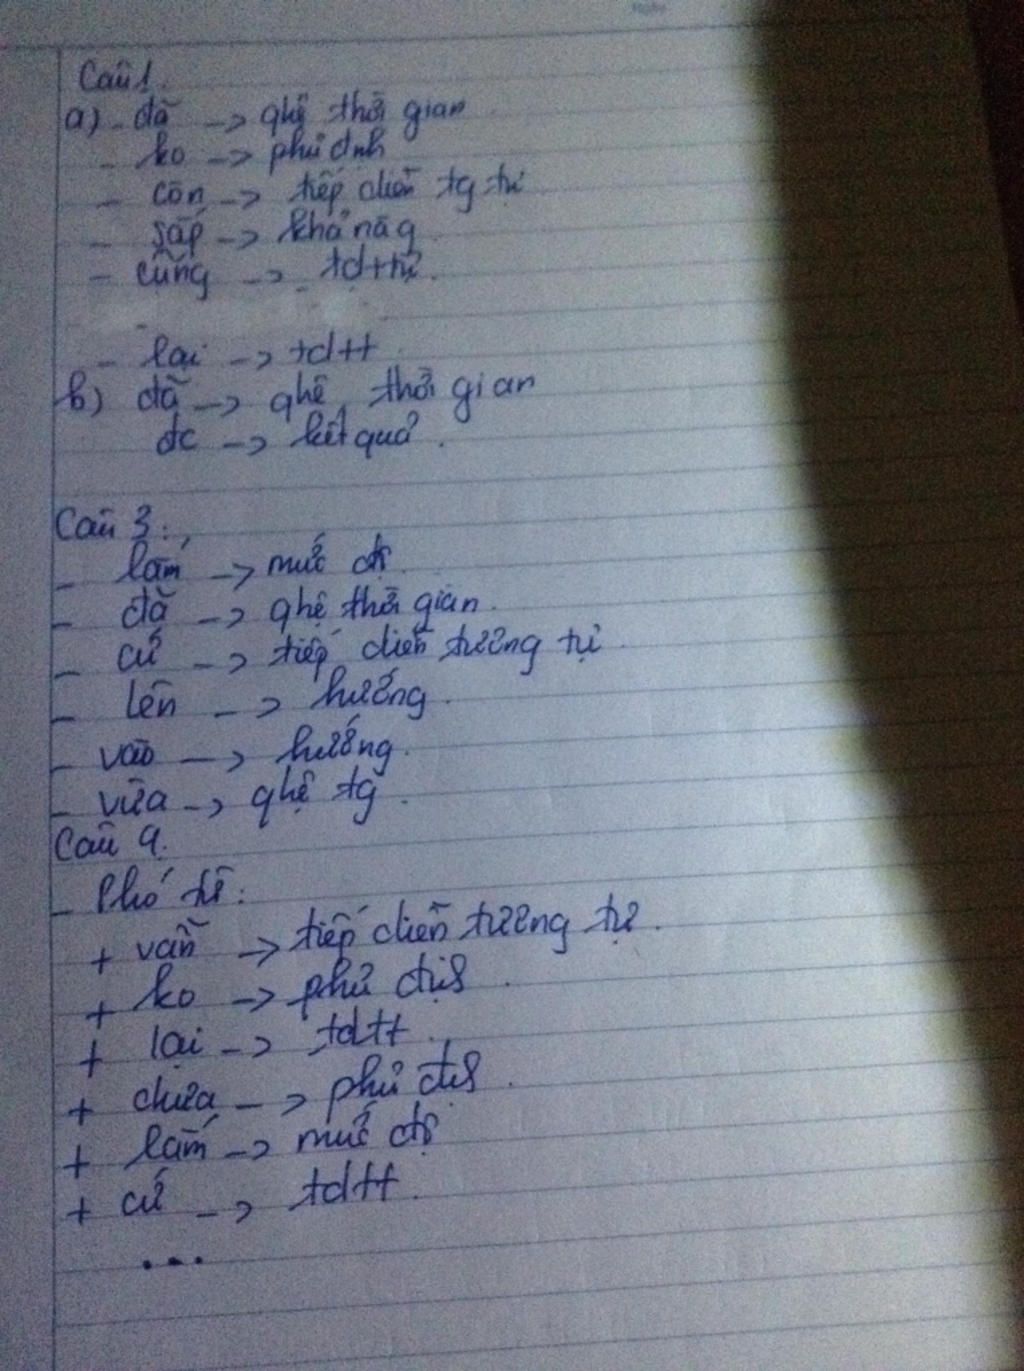 Câu 1.
a) - đã -> qhệ thời gian
- ko -> phủ định
- còn -> tiếp diễn tg tự
- sắp -> khả năg
- cũng -> tdttự.
- lại -> tdtt
b) đã -> qhệ thời gian
đc -> kết quả.
Câu 3:
- lắm -> mức độ
- đã -> qhệ thời gian.
- cứ -> tiếp diễn tương tự
- lên -> hướng.
- vào -> hướng.
- vừa -> qhệ tg.
Câu 4.
- Phó từ:
+ vẫn -> tiếp diễn tương tự.
+ ko -> phủ địh.
+ lại -> tdtt.
+ chưa -> phủ địh.
+ lắm -> mức độ
+ cứ -> tdtt.
...